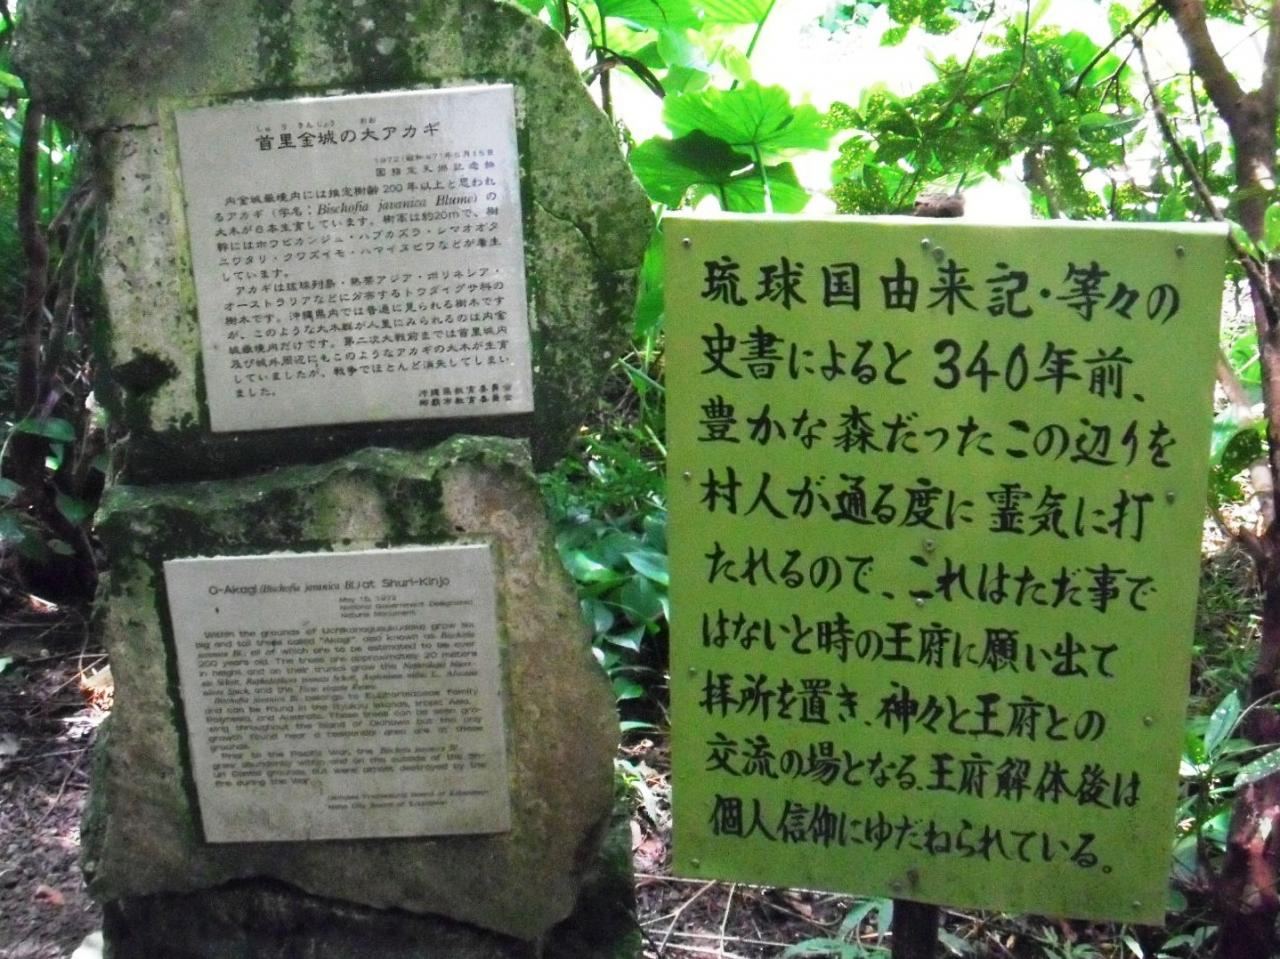 しゅ り きんじょう おお
首里金城の大アカギ
1972(昭和47)年5月15日
国指定天然記念物
内金城嶽境内には推定樹齢200年以上と思われ
るアカギ(学名:Bischofia javanica Blume)の
大木が6本生育しています。樹高は約20mで、樹
幹にはホウビカンジュ・ハブカズラ・シマオオタ
ニワタリ・クワズイモ・ハマイヌビワなどが着生
しています。
アカギは琉球列島・熱帯アジア・ポリネシア・
オーストラリアなどに分布するトウダイグサ科の
樹木です。沖縄県内では普通に見られる樹木です
が、このような大木群が人里にみられるのは内金
城嶽境内だけです。第二次大戦前までは首里城内
及び城外周辺にもこのようなアカギの大木が生育
していましたが、戦争でほとんど消失してしまい
ました。
沖縄県教育委員会
那覇市教育委員会
O-Akagi (Bischofia javanica Bl.) at Shuri-Kinjo
May 15, 1972
National Government Designated
Natural Monument
Within the grounds of Uchikanagusukudake grow six
big and tall trees called "Akagi", also known as Bischofia
javanica Bl. all of which are to be estimated to be over
200 years old. The trees are approximately 20 meters
in height and on their trunks grow the
and the
Bischofia javanica Bl. belongs to Euphorbiaceae Family
and can be found in the Ryukyu Islands, tropic Asia,
Polynesia, and Australia. These trees can be seen gro-
wing throughout the island of Okinawa but the only
growth found near a residential area are at these
grounds.
Prior to the Pacific War, the Bischofia javanica Bl.
grew abundantly within and on the outside of the Sh-
uri Castle grounds, but were almost destroyed by the
fire during the War.
Okinawa Prefectural Board of Education
Naha City Board of Education
琉球国由来記・等々の
史書によると340年前、
豊かな森だったこの辺りを
村人が通る度に霊気に打
たれるので、これはただ事で
はないと時の王府に願い出て
拝所を置き、神々と王府との
交流の場となる。王府解体後は
個人信仰にゆだねられている。